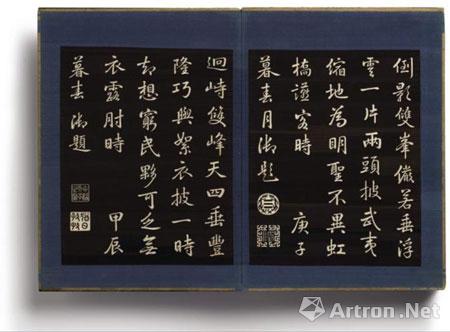 倒影雙峯儼若垂浮
雲一片兩頭披武夷
縮地為明聖不異虹
橋讌客時 庚子
暮春月御題
迴峙雙峰天四垂豐
隆巧與絮衣披一時
却想窮民夥可乏無
衣露肘時 甲辰
暮春御題
Artron.Net